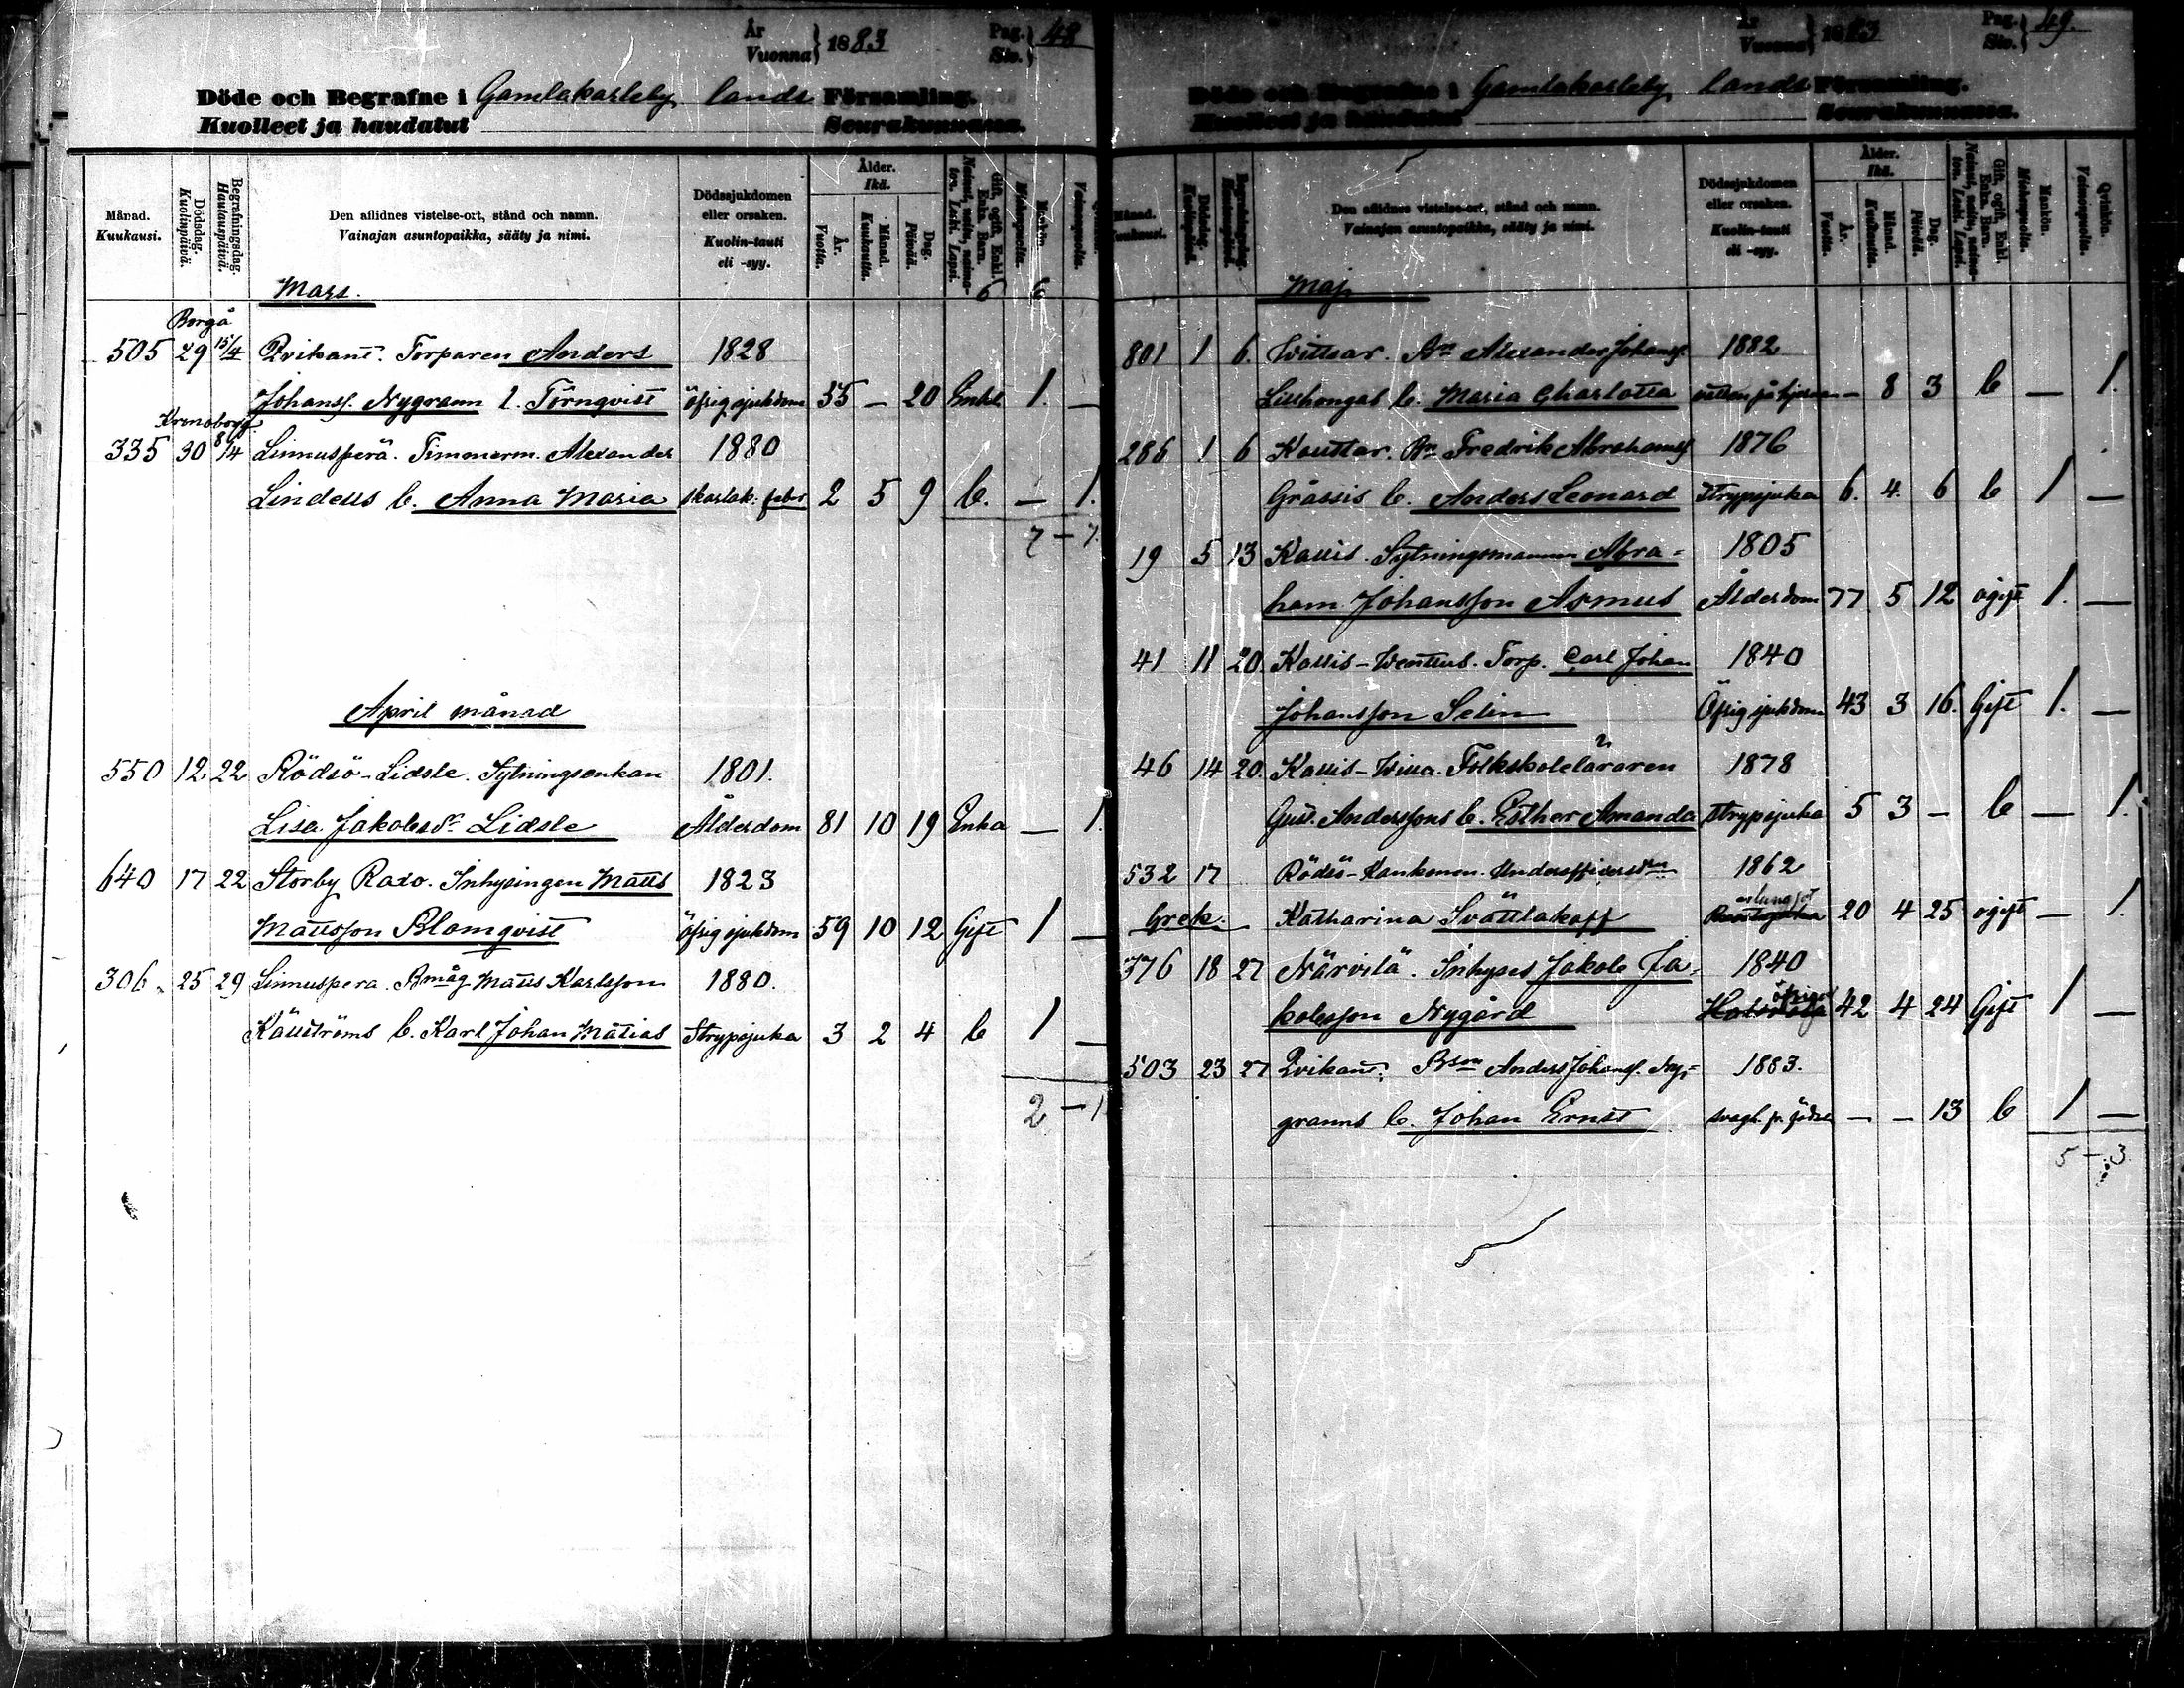 År
Vuonna } 1883
Pag.
Siv. } 48
Döde och Begrafne i Gamlakarleby lands Församling.
Kuolleet ja haudatut Seurakunnassa.
Månad.
Kuukausi.
Dödsdag.
Kuolinpäivä.
Begrafningsdag.
Hautauspäivä.
Den aflidnes vistelse-ort, stånd och namn.
Vainajan asuntopaikka, sääty ja nimi.
Dödssjukdomen
eller orsaken.
Kuolin-tauti
eli -syy.
Ålder.
Ikä.
År.
Vuotta.
Månad.
Kuukautta.
Dag.
Päivää.
Gift, ogift, Enkl.
Enka. Barn.
Mankön.
Miehenpuolia.
Vaimonpuolia.
Mars. 6 6
Borgå
505 29 15/4 Qvikant. Torparen Anders 1828
Johanss. Nygrann l. Törnqvist öfrig sjukdom 55 – 20 Enkl 1. –
Kronoborg
335 30 8/4 Linnusperä. Timmerm. Alexander 1880
Lindells b. Anna Maria skarlak. feber 2 5 9 b. – 1.
7 – 7.
April månad
550 12 22 Rödsö-Lidsle. Sytningsenkan 1801.
Lisa Jakobsdr Lidsle Ålderdom 81 10 19 Enka – 1.
640 17 22 Storby Raxo. Inhysingen Matts 1823
Mattsson Blomqvist Öfrig sjukdom 59 10 12 Gift 1 –
306. 25 29 Linnuspera. Bmåg Matts Karlsson 1880.
Källströms b. Karl Johan Matias Strypsjuka 3 2 4 b 1 –
2 – 1
År
Vuonna } 1883
Pag.
Siv. } 49.
Döde och Begrafne i Gamlakarleby lands Församling.
Kuolleet ja haudatut Seurakunnassa.
Månad.
Kuukausi.
Dödsdag.
Kuolinpäivä.
Begrafningsdag.
Den aflidnes vistelse-ort, stånd och namn.
Vainajan asuntopaikka, sääty ja nimi.
Dödssjukdomen
eller orsaken.
Kuolin-tauti
eli -syy.
Ålder.
Ikä.
År.
Vuotta.
Månad.
Kuukautta.
Dag.
Päivää.
Gift, ogift, Enkl.
Enka. Barn.
Mankön.
Miehenpuolia.
Qvinkön.
Vaimonpuolia.
Maj
801 1 6. Wittsar. Bn Alexander Johanss. 1882
b. Maria Charlotta vatten på hjernan – 8 3 b – 1.
286 1 6 Kaustar. Bn Fredrik Abrahamss 1876
Gråssis b. Anders Leonard Strypsjuka 6. 4. 6 b 1 –
19 5 13 Kallis. Sytningsmannen Abra- 1805
ham Johansson Asmus Ålderdom 77 5 12 ogift 1. –
41 11 20. Kallis-Wentus. Torp. Carl Johan 1840
Johansson Selin Öfrig sjukdom 43 3 16. Gift 1. –
46 14 20. Kallis-Willa. Folkskoleläraren 1878
Gust. Anderssons b. Esther Amanda Strypsjuka 5 3 – b – 1.
532 17 Rödsö-Kankonen. Underofficers 1862
Grek. Katharina Svättlakoff 20 4 25 ogift – 1.
376 18 27 Närvilä. Inhyses Jakob Ja- 1840
kobsson Nygård öfrig 42 4 24 Gift 1 –
503 23 27 Qvikant. Bson Anders Johanss. Ny- 1883.
granns b. Johan Ernst svagh. fr. födsel – – 13 b 1 –
5 – 3